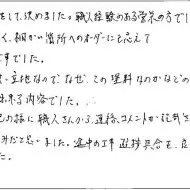 をして、決めました。職人経験のある営業の方で
く、細かい箇所へのオーダーにも応えて
事でした。
なので、なぜ、この塗料なのかなどの
出来る内容でした。
の様に職人さんから、連絡、コメントが記載さ
みだと思いました。途中の工事進捗具合を、
た。